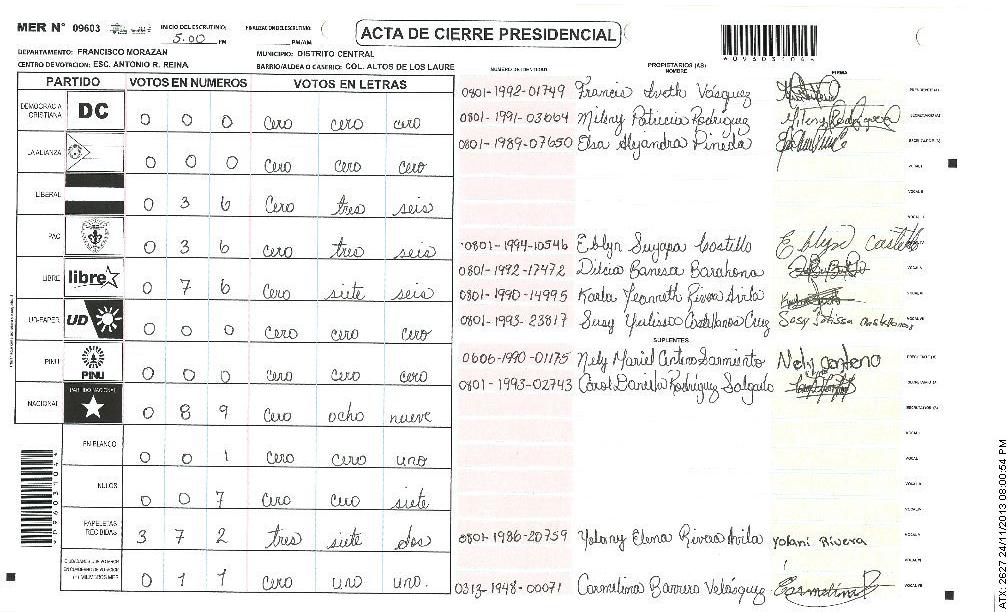 MER N° 09603 INICIO DEL ESCRUTINIO: 5.00 PM FINALIZACION DEL ESCRUTINIO: PM/AM
ACTA DE CIERRE PRESIDENCIAL
DEPARTAMENTO: FRANCISCO MORAZAN MUNICIPIO: DISTRITO CENTRAL
CENTRO DE VOTACION: ESC. ANTONIO R. REINA BARRIO/ALDEA O CASERIO: COL. ALTOS DE LOS LAURE
PARTIDO VOTOS EN NUMEROS VOTOS EN LETRAS
DEMOCRACIA CRISTIANA DC 0 0 0 cero cero cero
LA ALIANZA 0 0 0 cero cero cero
LIBERAL 0 3 6 cero tres seis
PAC 0 3 6 cero tres seis
LIBRE libre 0 7 6 cero siete seis
UD-FAPER UD 0 0 0 cero cero cero
PINU PINU 0 0 0 cero cero cero
NACIONAL PARTIDO NACIONAL 0 8 9 cero ocho nueve
EN BLANCO 0 0 1 cero cero uno
NULOS 0 0 7 cero cero siete
PAPELETAS RECIBIDAS 3 7 2 tres siete dos
0 1 1 cero uno uno.
NUMERO DE IDENTIDAD PROPIETARIOS (AS) NOMBRE FIRMA
0801-1992-01749 Francis Iveth Vásquez
0801-1991-03664 Mileny Patricia Rodriguez
0801-1989-07650 Elsa Alejandra Pineda
0801-1994-10546 Eblyn Suyapa Castillo
0801-1992-17472 Dilcia Banesa Barahona
0801-1990-14995 Karla Jeanneth Rivera Avila
0801-1993-23817 Susy Yulissa Castellanos Cruz
SUPLENTES
0606-1990-01175 Nely Mariel Centeno Sarmiento Nely Centeno
0801-1993-02743 Carol Daniela Rodriguez Salgado
0801-1986-20759 Yolany Elena Rivera Avila Yolani Rivera
0313-1948-00071 Carmelina Barrera Velásquez Carmelina B
ATX: 2627 24/11/2013 08:00:54 PM